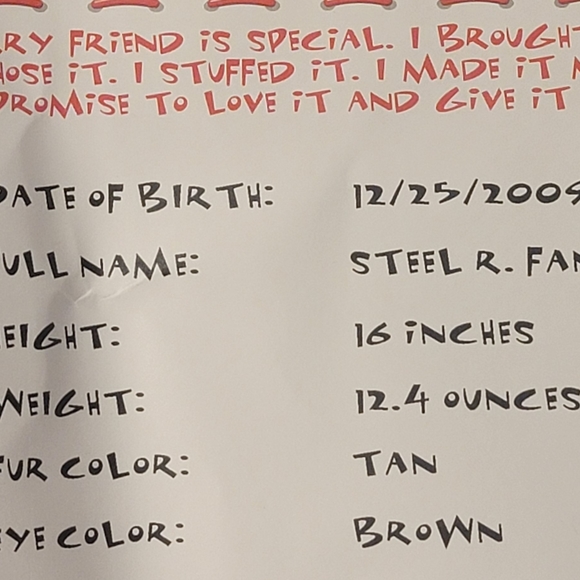 RY FRIEND IS SPECIAL. I BROUGHT
OSE IT. I STUFFED IT. I MADE IT
PROMISE TO LOVE IT AND GIVE IT
DATE OF BIRTH: 12/25/2009
ULL NAME: STEEL R. FAN
EIGHT: 16 INCHES
WEIGHT: 12.4 OUNCES
FUR COLOR: TAN
EYE COLOR: BROWN